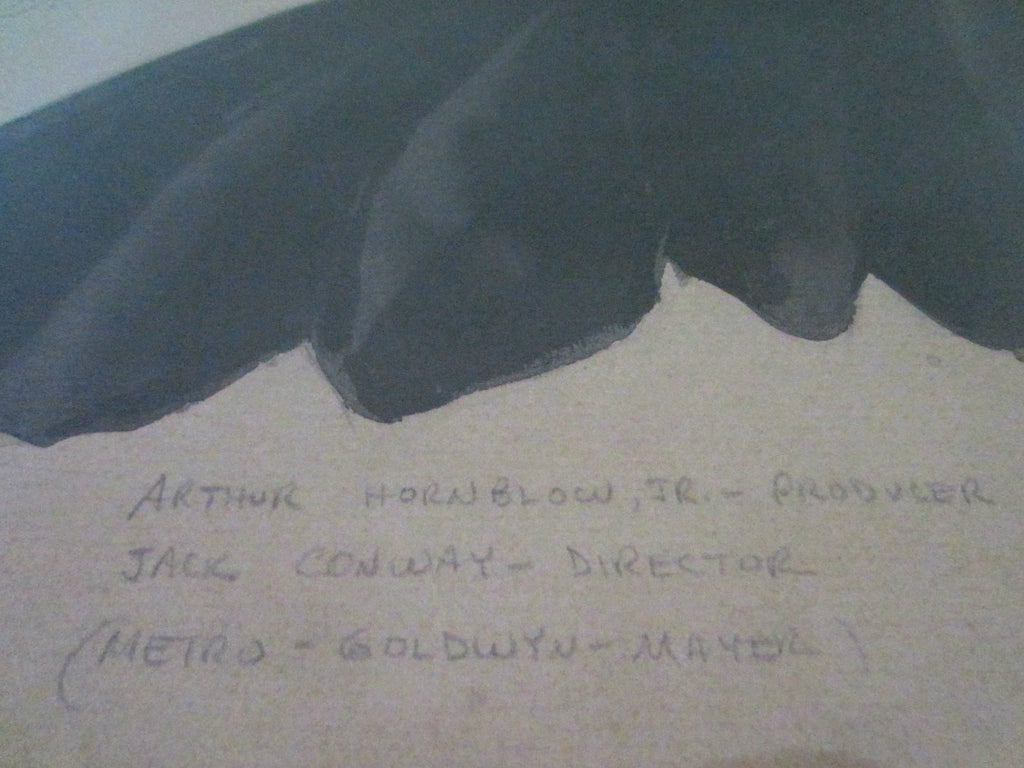 ARTHUR HORNBLOW, JR. - PRODUCER
JACK CONWAY - DIRECTOR
(METRO - GOLDWYN - MAYER)